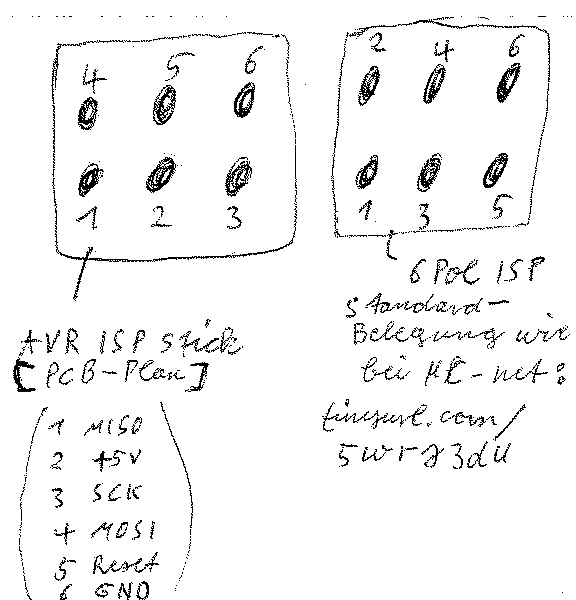 4 5 6
1 2 3
AVR ISP Stick
[PCB-Plan]
1 MISO
2 +5V
3 SCK
4 MOSI
5 Reset
6 GND
2 4 6
1 3 5
6 Pol ISP
Standard-
Belegung wie
bei µC-net:
tinyurl.com/